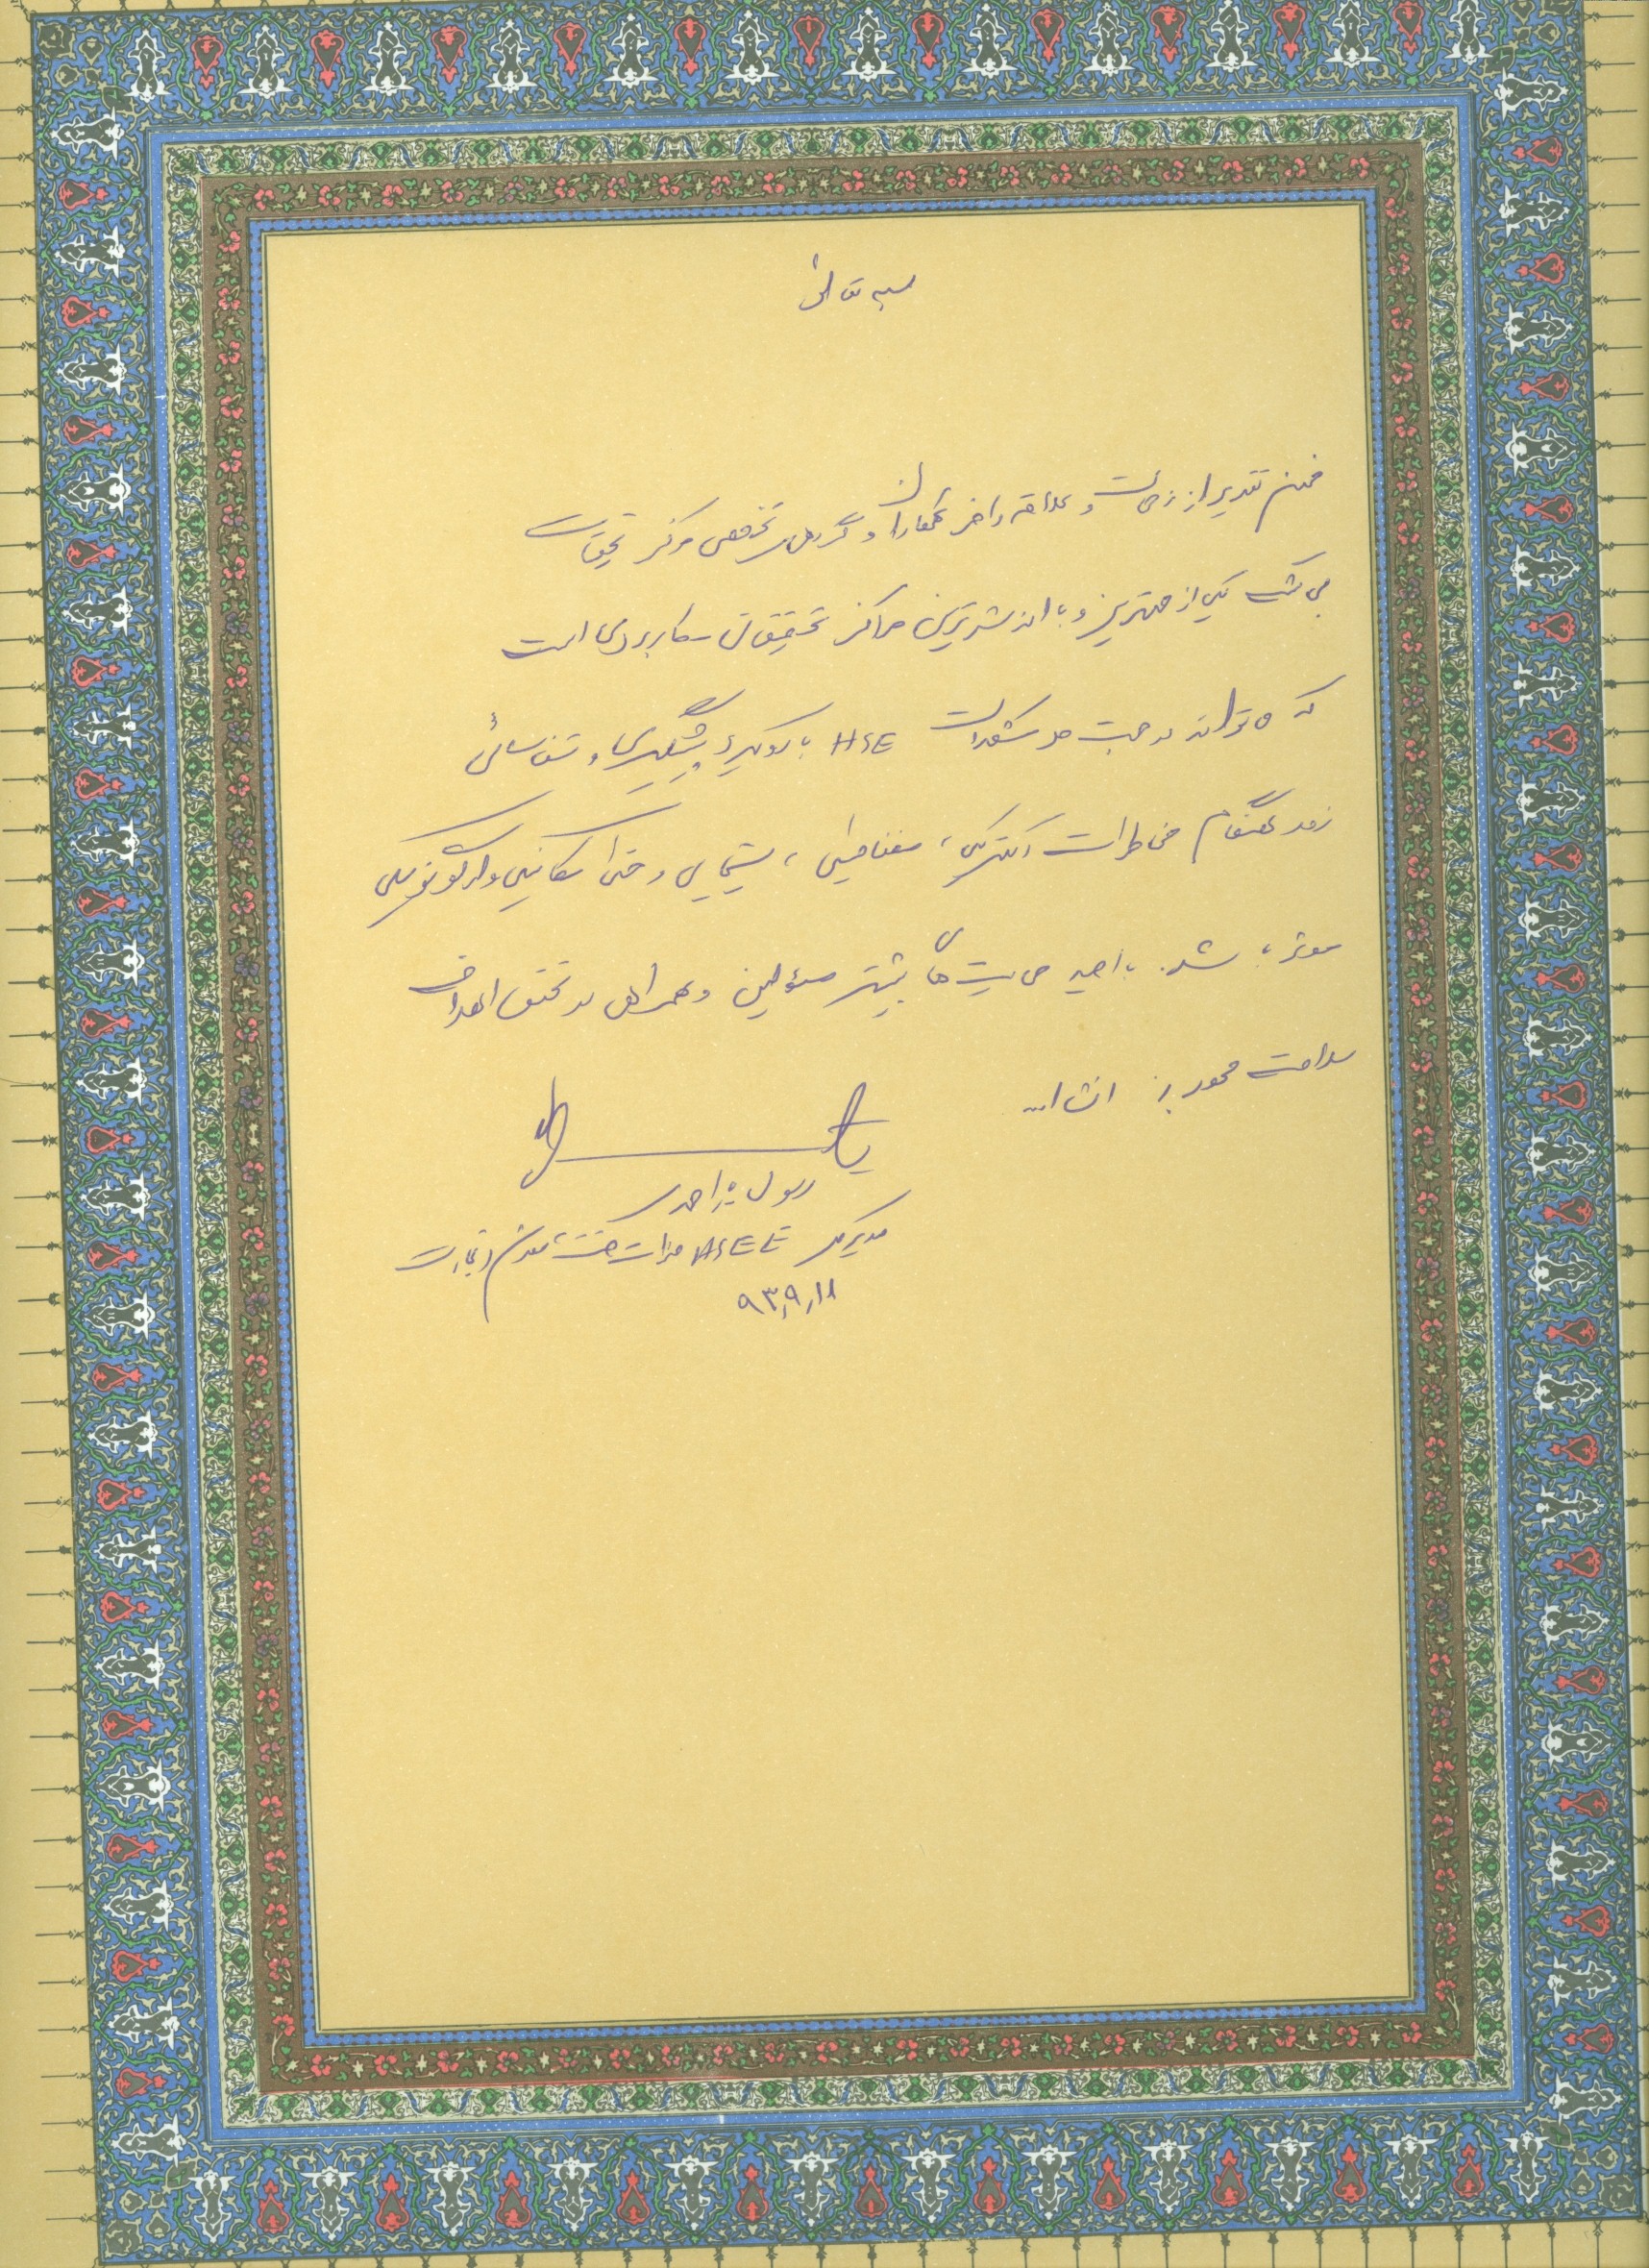 بسمه تعالی
ضمن تقدیر از زحمات و علاقه وافر همکاران و گروه تخصصی مرکز تحقیقات
می‌باشد یکی از مهمترین و با ارزش‌ترین مراکز تحقیقاتی کاربردی است
که می‌تواند در جهت حل مشکلات HSE با رویکرد پیشگیری و شناسائی
زود هنگام مخاطرات الکتریکی، مغناطیسی، شیمیایی و حتی مکانیکی و ارگونومیکی
موثر باشد. با امید حمایت‌های بیشتر مسئولین و همراهی در تحقق اهداف
سلامت محور انشاا...
رسول
مدیر کل HSEE وزارت صنعت، معدن و تجارت
۹۳،۹،۱۸